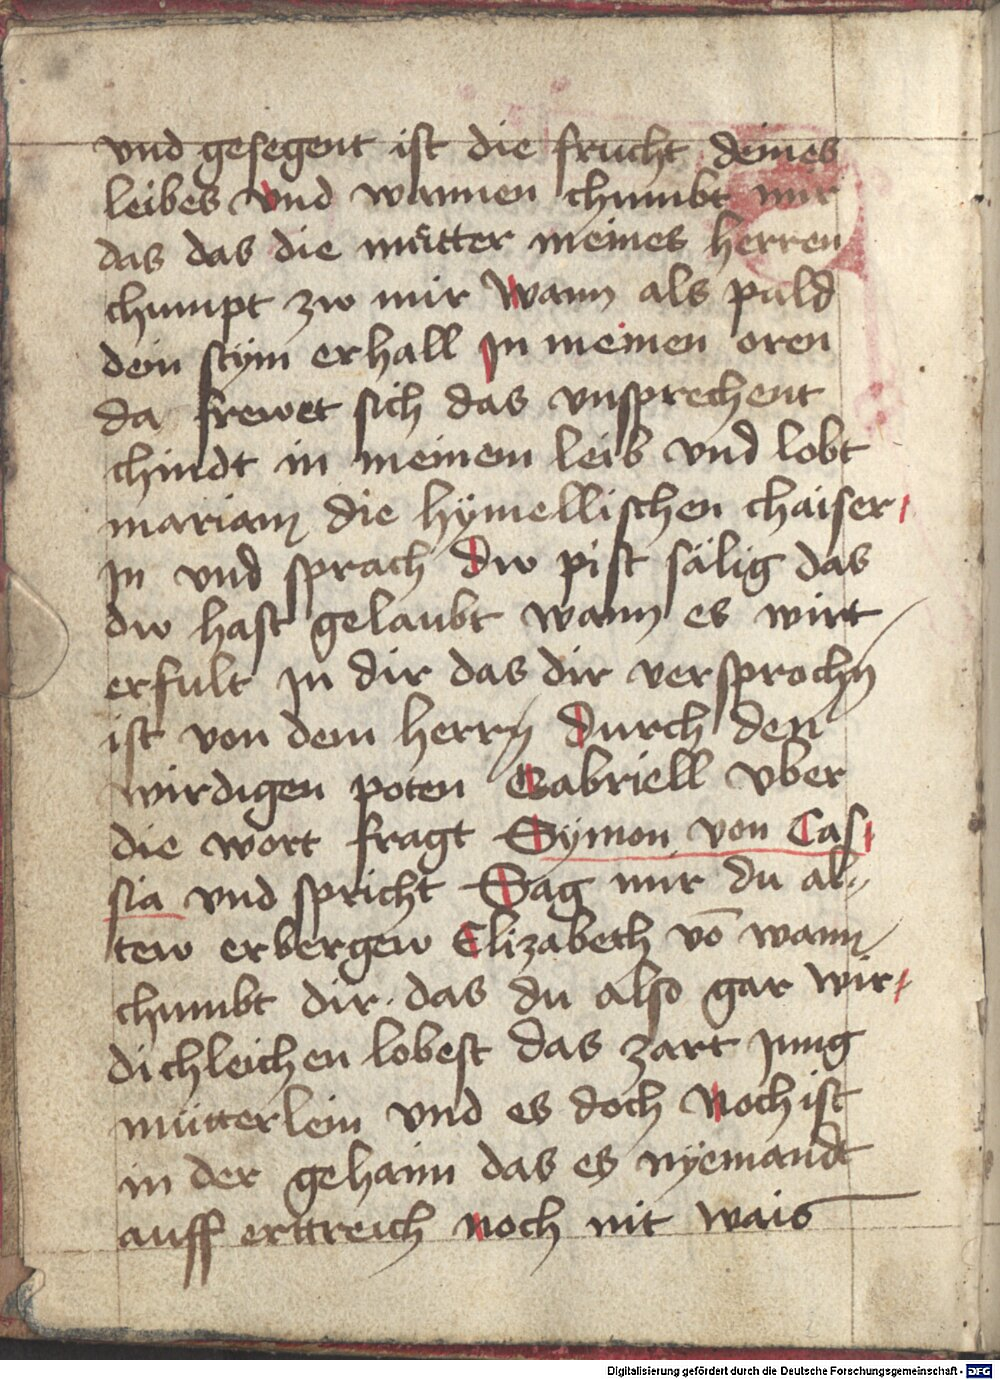 vnd gesegent ist die frucht deines
leibes vnd wannen chumbt mir
das das die můtter meines herren
chumpt zw mir Wann als pald
dein stym erhall jn meinen oren
da frewet sich das vnsprechent
chindt in meinem leib vnd lobt
mariam die hÿmellischen chaiser-
jn vnd sprach dw pist sälig das
dw hast gelaubt wann es wirt
erfult jn dir das dir versprochn
ist von dem herrn durch den
wirdigen poten Gabriell vber
die wort fragt Symon von Cas-
sia vnd spricht Sag mir du al-
tew erbergew Elizabeth vō wann
chumbt dir das du also gar wir-
dichleichen lobest das zart jung
mütterlein vnd es doch noch ist
in der gehaim das es nyemandt
auff erttreich noch nit wais
Digitalisierung gefördert durch die Deutsche Forschungsgemeinschaft - DFG